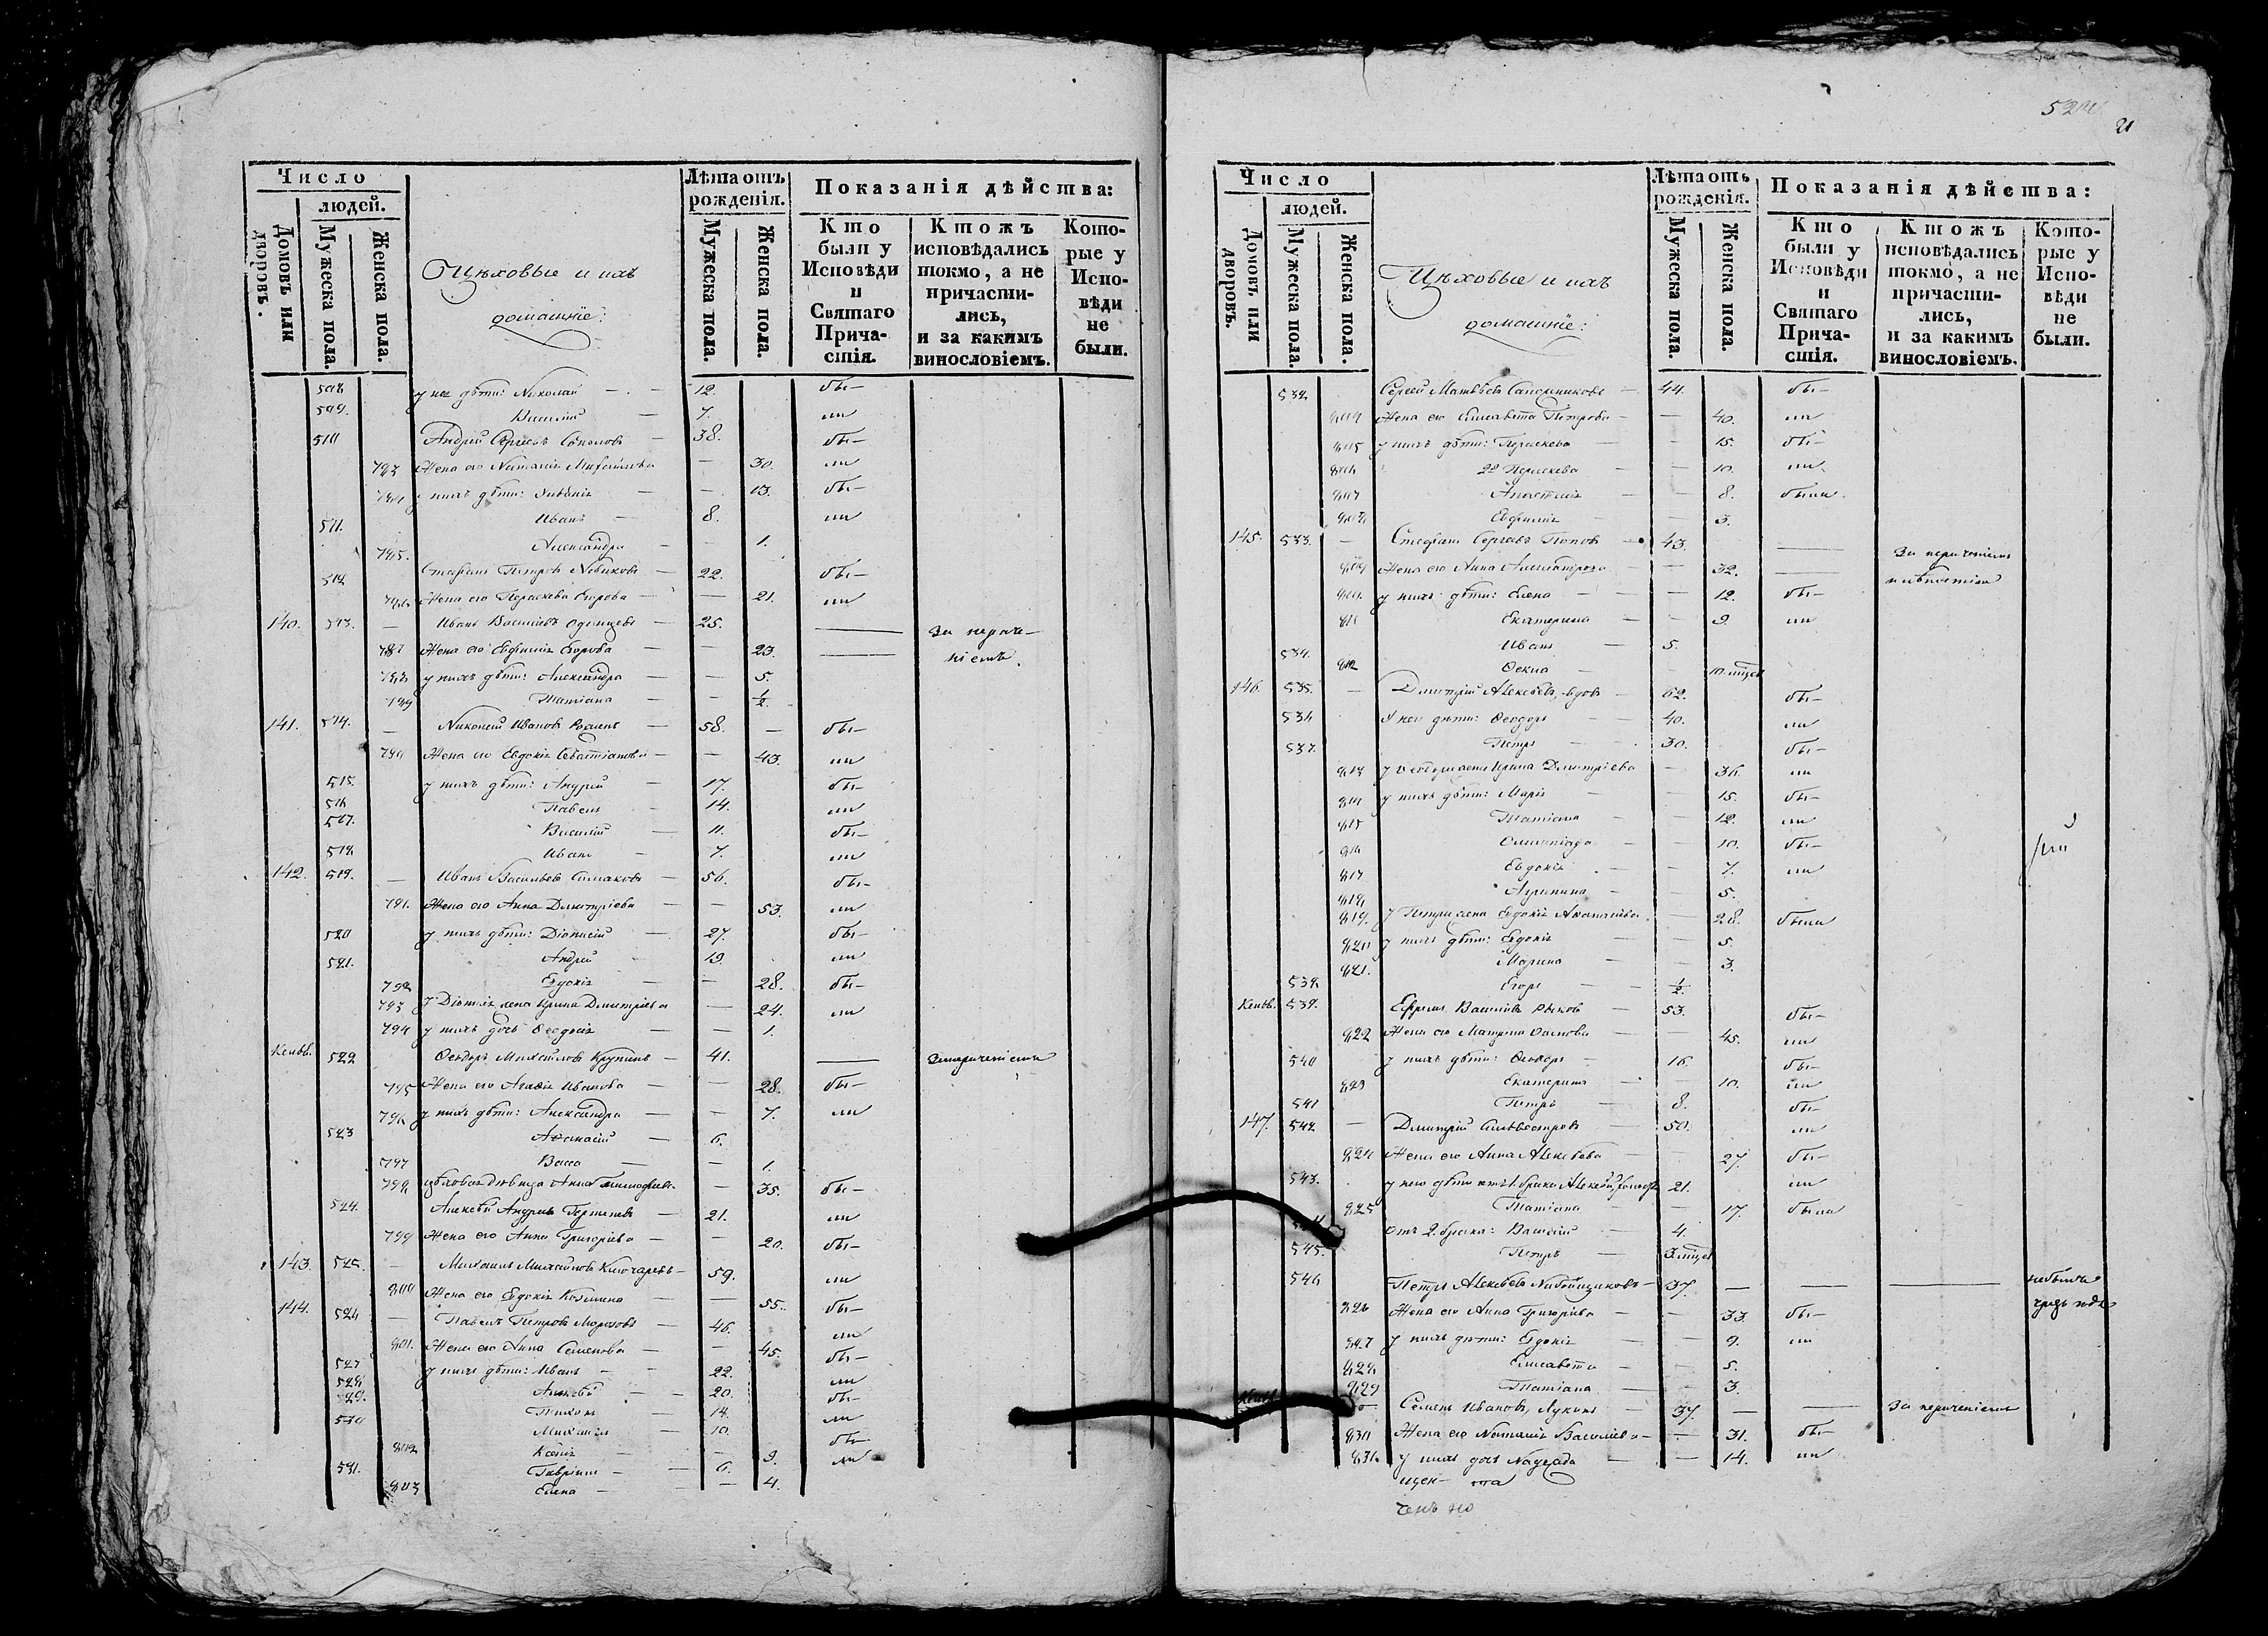 Число
людей.
Домовъ или дворовъ.
Мужеска пола.
Женска пола.
Цѣховые и ихъ
домашніе:
Лѣта отъ
рожденія.
Мужеска пола.
Женска пола.
Показанія дѣйства:
Кто
были у
Исповѣди
и
Святаго
Прича-
стія.
Ктожъ
исповѣдались
токмо, а не
причасти-
лись,
и за какимъ
винословіемъ.
Кото-
рые у
Испо-
вѣди
не
были.
508 у нее дѣти: Николай 12. бы-
509. Василій 7. ли
510 Андрей Сергѣевъ 38. бы-
783 Жена его Наталія Михайлова 30. ли
784 у нихъ дѣти: 13. бы-
511. Иванъ 8. ли
785. Александра 1.
512 Стефанъ Петровъ Новиковъ 22. бы-
786 Жена его Параскева Егорова 21. ли
140. 513. Иванъ Васильевъ Одинцовъ 25. За нераче-
787 Жена его Евфимія Егорова 23. ніемъ.
788 у нихъ дѣти: Александра 5.
789 Татіана ½.
141. 514. Иванов 58. бы-
790 Жена его Евдокія Севастіанова 43. ли
515. у нихъ дѣти: Андрей 17. бы-
516 Павелъ 14. ли
517. Василій 11. бы-
518 Иванъ 7. ли
142. 519. Иванъ Васильевъ Симаковъ 56. бы-
791. Жена его Анна Дмитріева 53. ли
520 у нихъ дѣти: Діонисій 27. бы-
521. Андрей 19. ли
792 Евдокія 28. бы-
793 у Діонисія жена Ирина Дмитріева 24. ли
794 у нихъ дочь Ѳеодосія 1.
522 Ѳеодоръ Михайловъ Крупинъ 41. за нераченіемъ
795 Жена его Агаѳія Иванова 28. бы-
796 у нихъ дѣти: Александра 7. ли
523 Аѳанасій 6.
797 Васса 1.
798 цѣховая дѣвица Анна 35. бы-
524. Алексѣй Андреевъ 21. ли
799 Жена его Анна Григорьева 20. бы-
143. 525. Михаилъ Михайловъ Ключаревъ 59. ли
800 Жена его Евдокія Козмина 55. бы-
144. 526 Павелъ Петровъ Морозовъ 46. ли
801. Жена его Анна Семенова 45. бы-
527 у нихъ дѣти: Иванъ 22. ли
528 Алексѣй 20. бы-
529. Тихонъ 14. ли
530 Михаилъ 10. бы-
802 Ксенія 9. ли
531. Гавріилъ 6.
803 Елена 4.
21
Число
людей.
Домовъ или дворовъ.
Мужеска пола.
Женска пола.
Цѣховые и ихъ
домашніе:
Лѣта отъ
рожденія.
Мужеска пола.
Женска пола.
Показанія дѣйства:
Кто
были у
Исповѣди
и
Святаго
Прича-
стія.
Ктожъ
исповѣдались
токмо, а не
причасти-
лись,
и за какимъ
винословіемъ.
Кото-
рые у
Испо-
вѣди
не
были.
532 Сергѣй Матвѣевъ Сапожниковъ 44. бы-
804 Жена его Елисавета Петрова 40. ли
805 у нихъ дѣти: Параскева 15. бы-
806 2я Параскева 10. ли
807 Анастасія 8. была
808 Евфимія 3.
145. 533. Стефанъ Сергѣевъ Поповъ 43. За нераченіемъ
809 Жена его Анна Александрова 32.
810 у нихъ дѣти: Елена 12. бы-
811 Екатерина 9. ли
534. Иванъ 5.
812 Ѳекла 10 мѣсец
146. 535. Димитрій Алексѣевъ, вдовъ 62. бы-
536 У него дѣти: Ѳеодоръ 40. ли
537. Петръ 30. бы-
813 у Ѳеодора жена Ирина Димитріева 36. ли
814 у нихъ дѣти: Марія 15. бы-
815 Татіана 12. ли
816 Олимпіада 10. бы-
817 Евдокія 7. ли
818 Агрипина 5.
819. у Петра жена Евдокія 28. была
820 у нихъ дѣти: Евдокія 5.
821. Марина 3.
538 Егоръ ½
539. Ефремъ Васильевъ 53. бы-
822 Жена его Матрона 45. ли
540 у нихъ дѣти: Ѳеодоръ 16. бы-
823 Екатерина 10. ли
541 Петръ 8. бы-
147. 542 Димитрій Сильвестровъ 50. ли
824 Жена его Анна Алексѣева 27. бы-
543. у него дѣти отъ 1. брака Алексѣй, 21. ли
825 Татіана 17. была
отъ 2. брака: Василій 4.
545. Петръ 3 мѣсец
546 Петръ Алексѣевъ Набойщиковъ 37. небылъ
826 Жена его Анна Григорьева 33. бы-
827 у нихъ дѣти: Евдокія 9. ли
828 Елисавета 5.
829 Татіана 3.
Семенъ Ивановъ Лукинъ 37. За нераченіемъ
830 Жена его Наталія Васильева 31. бы-
831. у нихъ дочь Надежда 14. ли